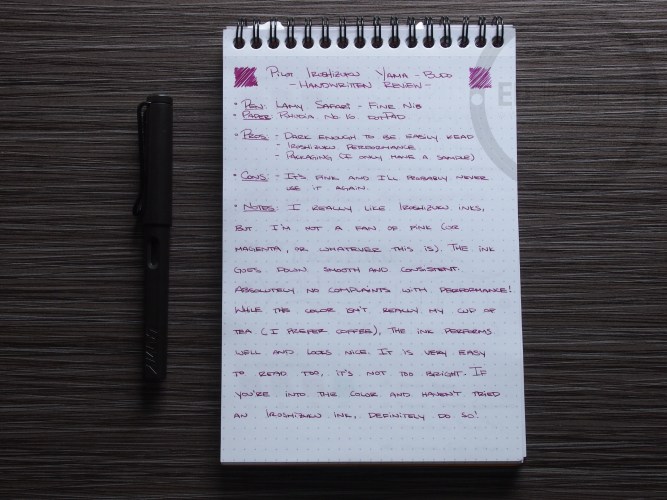 Pilot Iroshizuku Yama-Budo
-Handwritten Review-
• Pen: Lamy Safari - Fine Nib
• Paper: Rhodia No. 16 dotPad
• Pros: - Dark enough to be easily read
- Iroshizuku performance
- Packaging (I only have a sample)
• Cons: - It's pink and I'll probably never
use it again.
• Notes: I really like Iroshizuku inks,
but I'm not a fan of pink (or
magenta, or whatever this is). The ink
goes down smooth and consistent.
Absolutely no complaints with performance!
While the color isn't really my cup of
tea (I prefer coffee), the ink performs
well and looks nice. It is very easy
to read too, it's not too bright. If
you're into the color and haven't tried
an Iroshizuku ink, definitely do so!